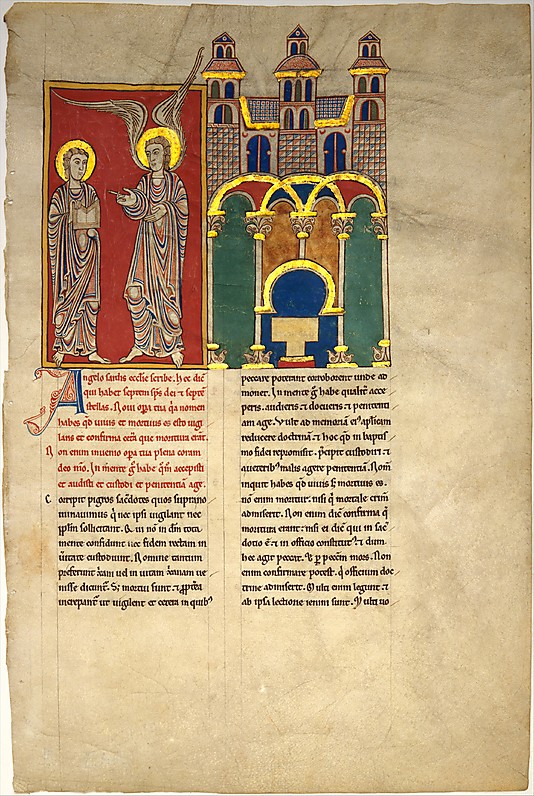 Angelo sardis eccl̄ie scribe. hec dic̄
qui habet septem sp̄s dei ⁊ septē
stellas. Noui opa tua q̄a nomen
habes qd̄ uiuis et mortuus es esto uigi
lans et confirma cetā que mortua erāt.
Non enim inuenio opa tua plena coram
deo meo. In mente g̊ habe qm̄ accepisti
et audisti et custodi et penitentiā age.
Corripit pigros sacerdotes quos suprano
minauimus q̄ nec ipsi uigilant nec
sollicitant. in no in dn̄m tota
mente confidunt nec fidem rectam in
custodiunt. Nomine tantum
preferunt uel in uitam ue
nisse dicunt̄. mortui sunt ⁊ ppt̄ea
increpant̄ ut uigilent et cetera in quib⁹
peccare poterant corroborent unde ad
monet. In mente g̊ habe qualit̄ acce
peris. audieris ⁊ docueris ⁊ penitenti
am age. ad memoriā aplicam
reducere doctrinā ⁊ hoc qd̄ in baptis
mo fidei repromisit. custodiri ⁊
a ueterib⁹ malis agere penitentiā. Nom̄
inquit habes qd̄ uiuis et mortuus es.
nō enim moritur nisi q̄ mortale crim̄
admiserit. Non enim dic̄ confirma q̄
mortura erant nisi ei dic̄ qui in sac̄
dotio ē ⁊ in officio constitut⁹ ⁊ dum
hec agit peccat. p peccm̄ mors. Non
enim confirmare potest. q̄ officium doc
trine admiserit. Multi enim legunt ⁊
ab ipsa lectione ieiuni sunt. Multi uo